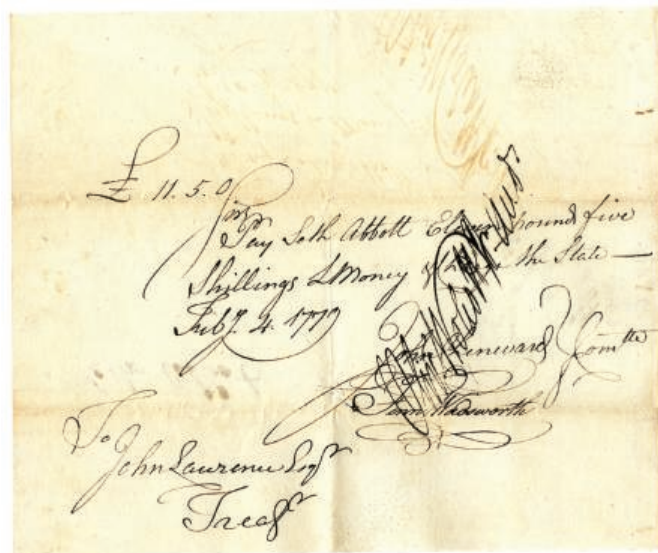 £ 11.5.0
Sir
Pay Seth Abbott Eleven pounds five
Shillings LMoney & the State —
Feby. 4. 1779
John Chenward Comtte
Wadsworth
To
John Lawrence Esqr
Treasr